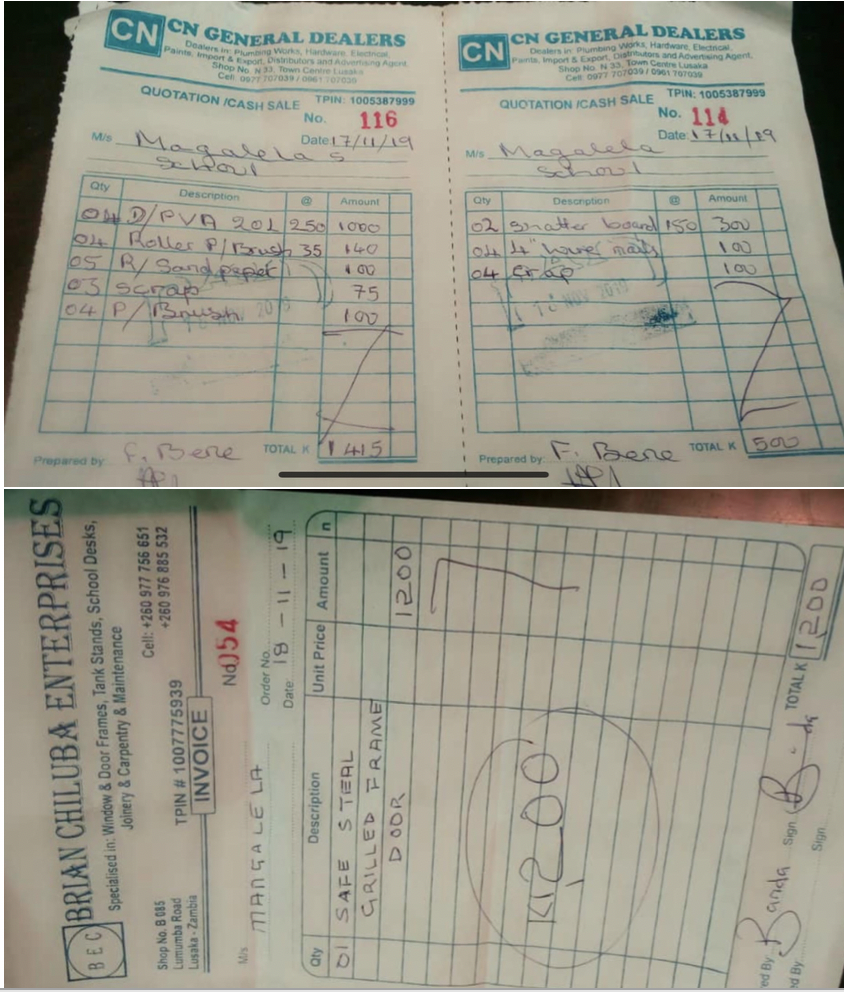 CN CN GENERAL DEALERS
Dealers in: Plumbing Works, Hardware, Electrical,
Paints, Import & Export, Distributors and Advertising Agent,
Shop No. N 33, Town Centre Lusaka
Cell: 0977 707039 / 0961 707039
QUOTATION /CASH SALE TPIN: 1005387999
No. 116
M/s Magalela s Date: 17/11/19
School
Qty Description @ Amount
04 D/PVA 20L 250 1000
04 Roller P/Brush 35 140
05 R/Sandpaper 100
03 scrap 75
04 P/Brush 100
NOV 20
Prepared by: F. Bene TOTAL K 1415
CN CN GENERAL DEALERS
Dealers in: Plumbing Works, Hardware, Electrical,
Paints, Import & Export, Distributors and Advertising Agent,
Shop No. N 33, Town Centre Lusaka
Cell: 0977 707039 / 0961 707039
QUOTATION /CASH SALE TPIN: 1005387999
No. 114
M/s Magalela Date: 17/11/19
School
Qty Description @ Amount
02 board 150 300
04 4" nails 100
04 100
NOV 2019
Prepared by: F. Bene TOTAL K 500
BEC BRIAN CHILUBA ENTERPRISES
Specialised in: Window & Door Frames, Tank Stands, School Desks,
Joinery & Carpentry & Maintenance
Shop No. B 085 Cell: +260 977 756 651
Lumumba Road +260 976 885 532
Lusaka - Zambia
TPIN # 1007775939
INVOICE No 054
M/s MANGALELA Order No.
Date: 18-11-19
Qty Description Unit Price Amount n
01 SAFE STEAL
GRILLED FRAME
DOOR 1200
K1200
ed By Banda Sign TOTAL K 1200
ed By Sign